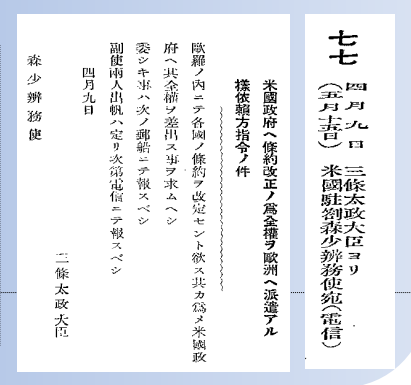 七七
四月九日 三條太政大臣ヨリ
(五月十五日) 米國駐劄森少辨務使宛(電信)
米國政府ヘ條約改正ノ爲全權ヲ歐洲ヘ派遣アル
樣依賴方指令ノ件
歐羅ノ內ニテ各國ノ條約ヲ改定セント欲ス其カ爲メ米國政
府ヘ其全權ヲ差出ス事ヲ求ムヘシ
委シキ事ハ次ノ郵船ニテ報スベシ
副使兩人出帆ハ定リ次第電信ニテ報スベシ
四月九日
三條太政大臣
森少辨務使